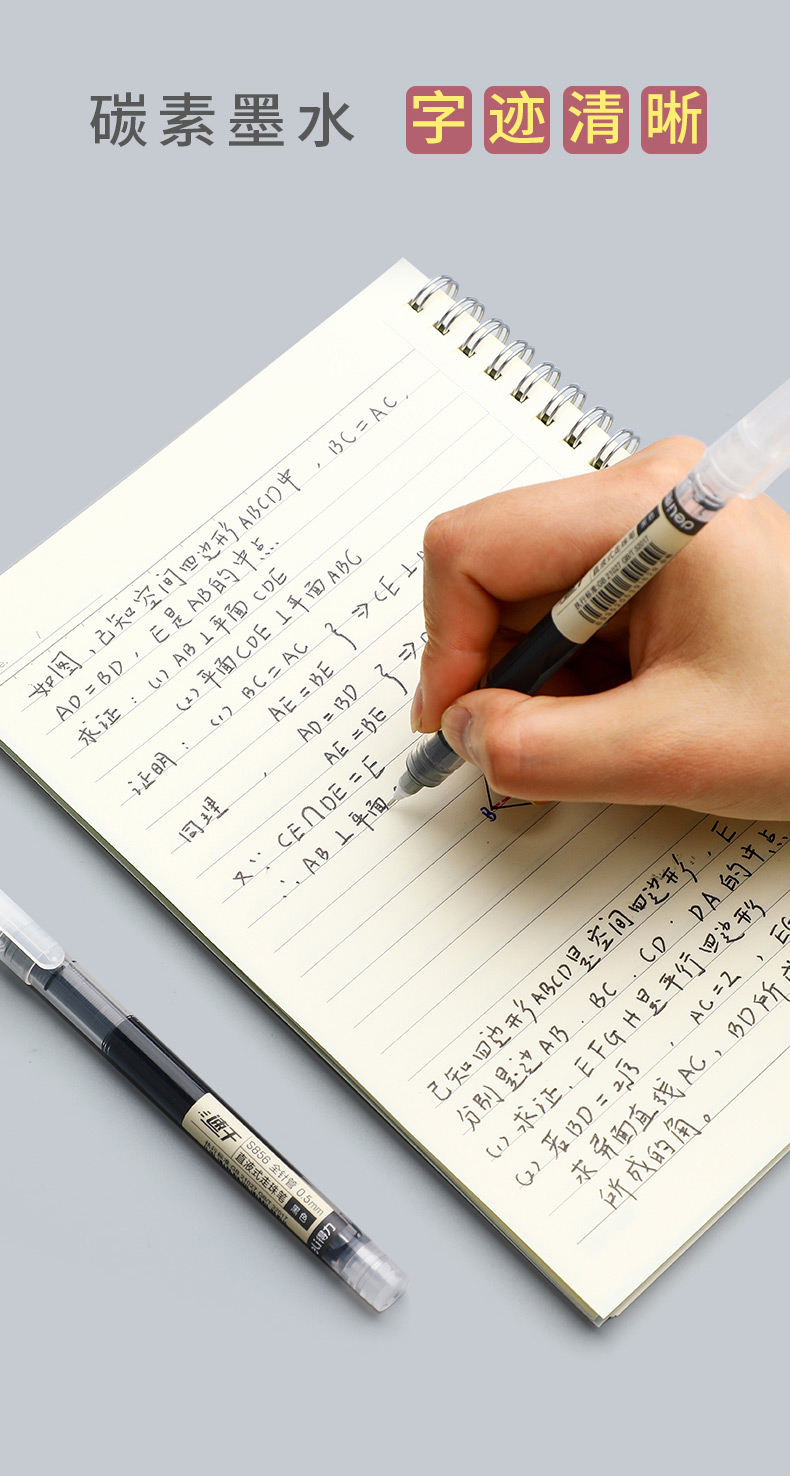 碳素墨水 字迹清晰
如图，已知空间四边形ABCD中，BC=AC，
AD=BD，E是AB的中点.
求证：(1) AB⊥平面CDE
(2) 平面CDE⊥平面ABC
证明：(1) BC=AC
AE=BE } ⇒ CE⊥
同理， AD=BD
AE=BE } ⇒
又∵ CE∩DE=E
∴ AB⊥平面
B
已知四边形ABCD是空间四边形，E
分别是边AB．BC．CD．DA的中点
(1) 求证．EFGH是平行四边形
(2) 若BD=2√3，AC=2，EG
求异面直线AC，BD所成
所成的角。
deli
速干
S856 全针管 0.5mm
直液式走珠笔 黑色
得力